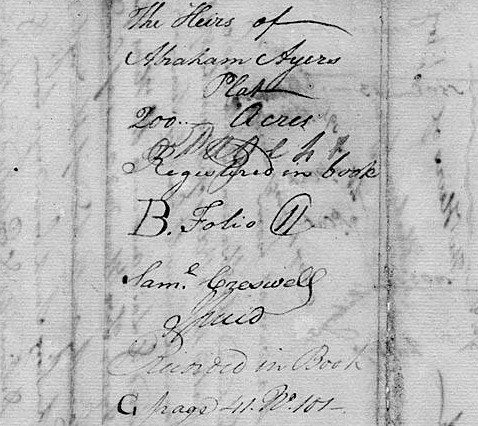 The Heirs of
Abraham Ayers
Plat
200 — Acres
Registered in book
B. Folio 11
Sam.l Creswell
Recorded in Book
G page 41. No. 101